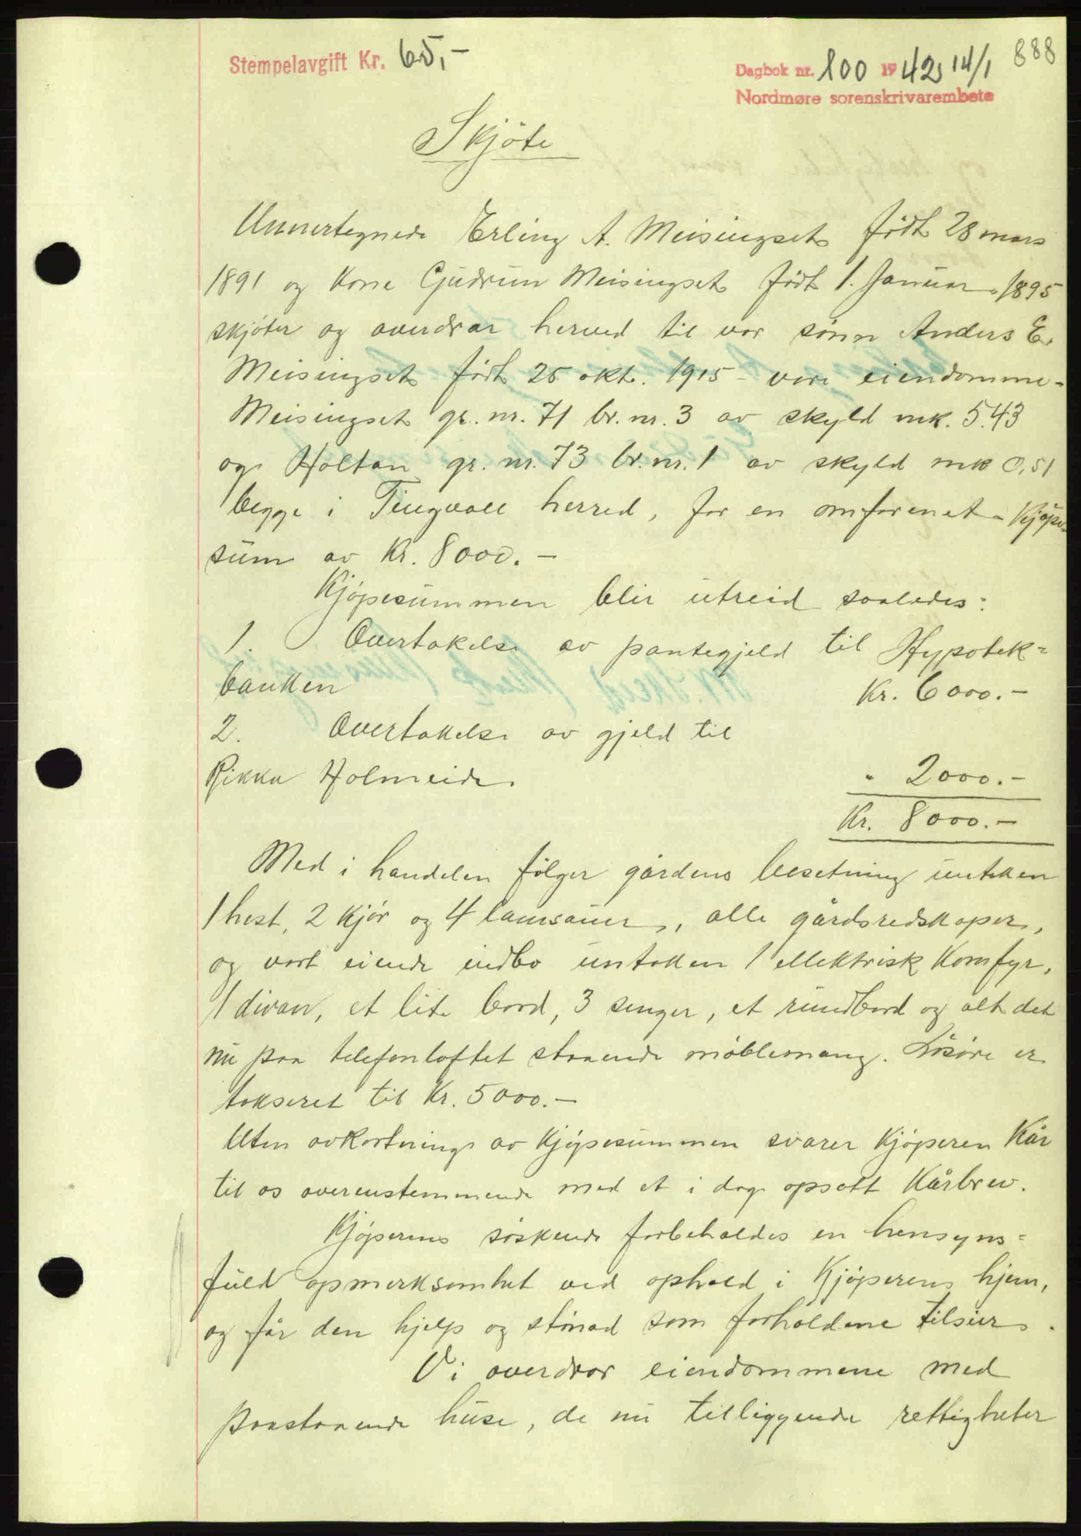 888
Stempelavgift Kr. 65,-
Dagbok nr. 100 1942, 14/1
Nordmøre sorenskrivarembete
Skjöte
Unnertegnede Erling A. Meisingset födt 28 mars
1891 og kone Gjudrun Meisingset födt 1. Januar 1895
skjöter og overdrar herved til vor sönn Anders E.
Meisingset födt 25 okt. 1915 - vore eiendomme-
Meisingset gr. nr. 71 br. nr. 3 av skyld mk. 5.43
og Holtan gr. nr. 73 br. nr. 1 av skyld mk 0,51
begge i Tingvoll herred, for en omforenet Kjöpe-
sum av Kr. 8000.-
Kjöpesummen blir utreid saaledes:
1. Overtakelse av pantegjeld til Hypotek=
banken Kr. 6000.-
2. Overtakelse av gjeld til
Rikka Holmeide. " 2000.-
Kr. 8000.-
Med i handelen fölger gårdens besetning untaken
1 hest, 2 kjör og 4 lamsauer, alle gårdsredskaper,
og vort eiende indbo untaken 1 ellektrisk Komfyr,
1 divan, et lite bord, 3 senger, et rundbord og alt det
nu paa telefonloftet staaende möblemang. Lösöre er
takseret til Kr. 5000.-
Uten avkortning av Kjöpesummen svarer Kjöperen Kår
til os overenstemmende med et i dag opsatt Kårbrev.
Kjöperens söskende forbeholdes en hensyns=
fuld opmerksomhet ved ophold i Kjöperens hjem,
og får den hjelp og stönad som forholdene tilsier.
Vi overdrar eiendommene med
paastaaende huse, de nu tilliggende rettigheter